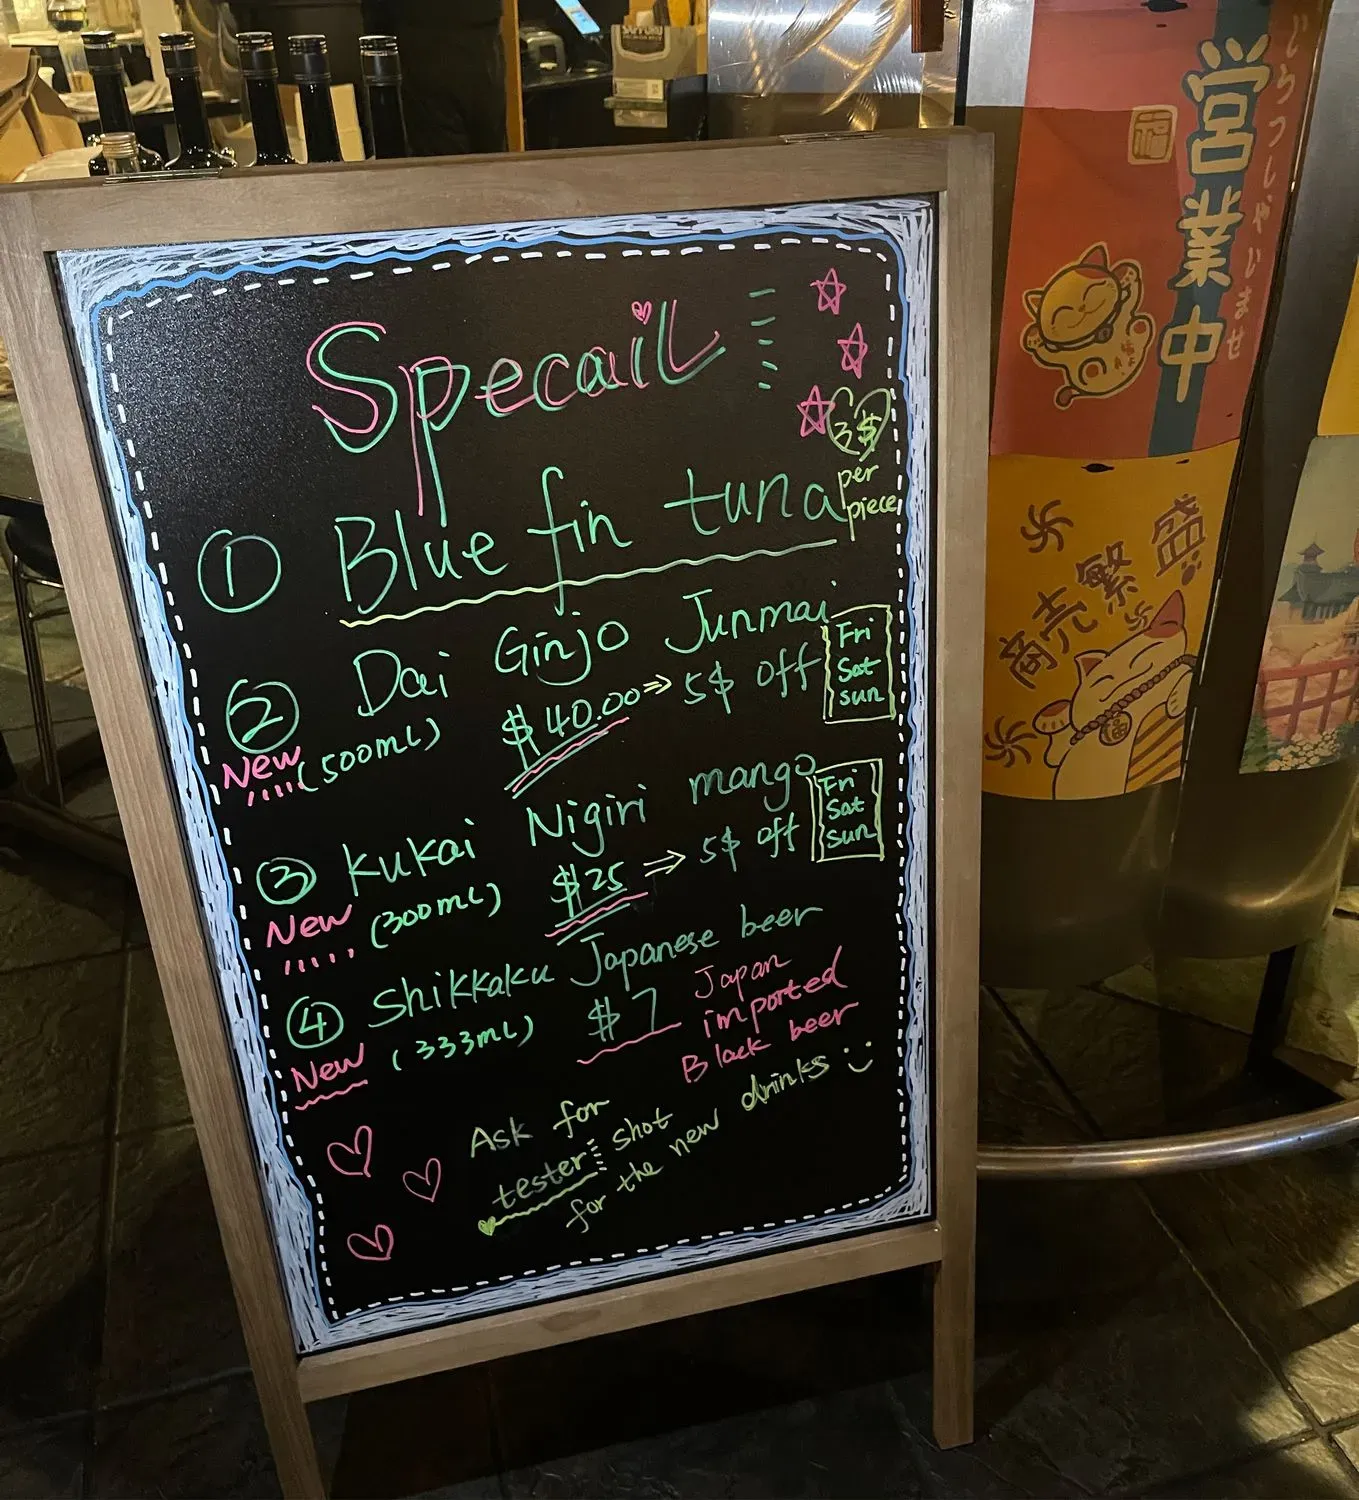 SAPPORO
Specail
3$
per
piece
① Blue fin tuna
② Dai Ginjo Junmai
New (500mL) $40.00 ⇒ 5$ off
Fri
Sat
Sun
③ Kukai Nigiri mango
New (300mL) $25 ⇒ 5$ off
Fri
Sat
Sun
④ Shikkaku Japanese beer
New (333mL) $7
Japan
imported
Black beer
Ask for
tester shot
for the new drinks :)
営業中
いらっしゃいませ
福
商売繁盛